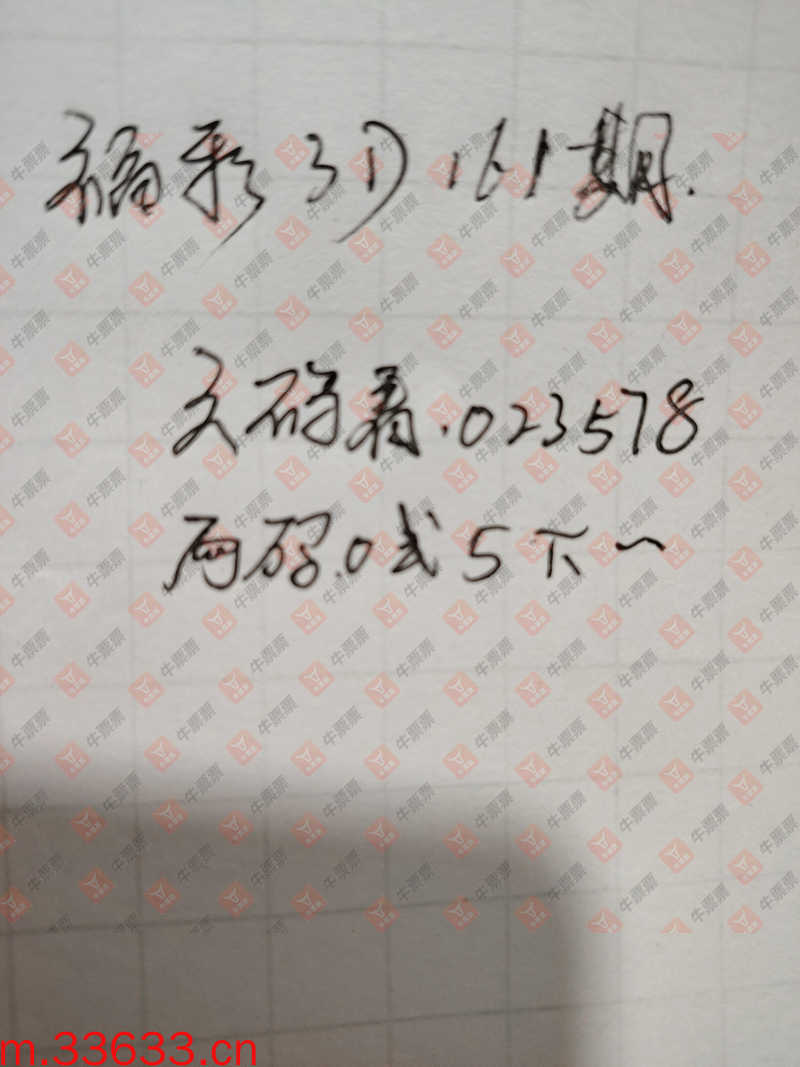 福彩3D161期.
六码看.023578
两码.0或5下一
牛票票
m.33633.cn